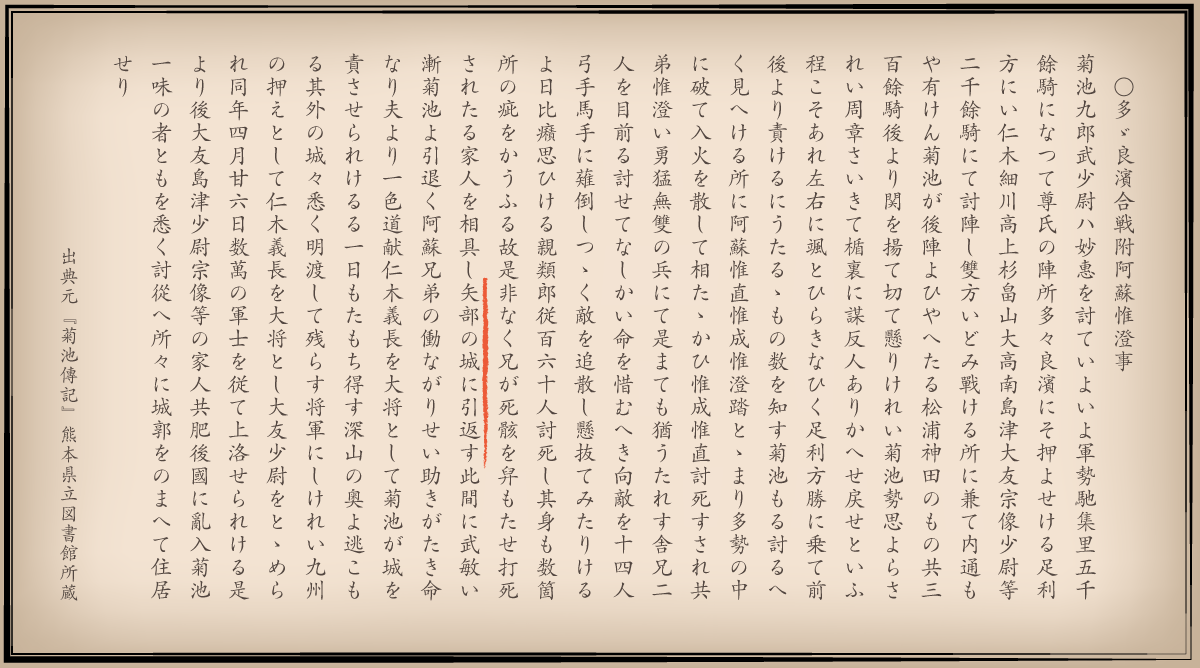 〇多ゞ良濱合戦附阿蘇惟澄事
菊池九郎武少尉ハ妙恵を討ていよいよ軍勢馳集里五千
餘騎になつて尊氏の陣所多々良濱にそ押よせける足利
方にい仁木細川高上杉畠山大高南島津大友宗像少尉等
二千餘騎にて討陣し雙方いどみ戰ける所に兼て内通も
や有けん菊池が後陣よひやへたる松浦神田のもの共三
百餘騎後より関を揚て切て懸りけれい菊池勢思よらさ
れい周章さいきて楯裏に謀反人ありかへせ戻せといふ
程こそあれ左右に颯とひらきなひく足利方勝に乗て前
後より責けるにうたるゝもの数を知す菊池もる討るへ
く見へける所に阿蘇惟直惟成惟澄踏とゝまり多勢の中
に破て入火を散して相たゝかひ惟成惟直討死すされ共
弟惟澄い勇猛無雙の兵にて是まても猶うたれす舎兄二
人を目前る討せてなしかい命を惜むへき向敵を十四人
弓手馬手に薙倒しつゝく敵を追散し懸抜てみたりける
よ日比癪思ひける親類郎従百六十人討死し其身も数箇
所の疵をかうふる故是非なく兄が死骸を舁もたせ打死
されたる家人を相具し矢部の城に引返す此間に武敏い
漸菊池よ引退く阿蘇兄弟の働ながりせい助きがたき命
なり夫より一色道献仁木義長を大将として菊池が城を
責させられけるる一日もたもち得す深山の奥よ逃こも
る其外の城々悉く明渡して残らす将軍にしけれい九州
の押えとして仁木義長を大将とし大友少尉をとゝめら
れ同年四月甘六日数萬の軍士を従て上洛せられける是
より後大友島津少尉宗像等の家人共肥後國に亂入菊池
一味の者ともを悉く討從へ所々に城郭をのまへて住居
せり
出典元『菊池傳記』熊本県立図書館所蔵